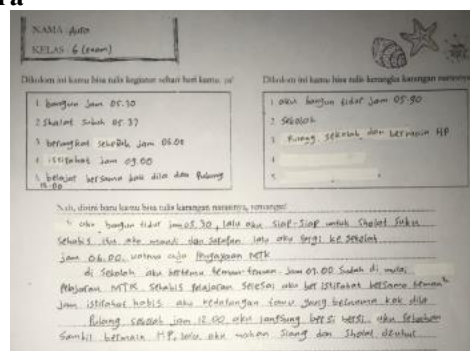 ra
NAMA : Aufa
KELAS : 6 (enam)
Dikolom ini kamu bisa tulis kegiatan sehari hari kamu, ya!
1. bangun jam 05.30
2. Shalat Subuh 05.37
3. berangkat sekolah jam 06.00
4. istirahat jam 09.00
5. belajar bersama kak dila dan Pulang
12.00
Dikolom ini kamu bisa tulis kerangka karangan narasinya
1. aku bangun tidur jam 05.30
2. Sekolah
3. Pulang sekolah dan bermain HP
4.
5.
Nah, disini baru kamu bisa tulis karangan narasinya, semangat!
aku bangun tidur jam 05.30, lalu aku siap-siap untuk Sholat Subu
Sehabis itu aku mandi dan Sarapan lalu aku pergi ke sekolah
jam 06.00, MTK
di Sekolah aku bertemu teman-teman. Jam 07.00 Sudah di mulai
Pelajaran MTK. Sehabis Pelajaran Selesai aku ber istirahat bersama teman²
Jam istirahat habis aku kedatangan tamu yang bernama kak dila
Pulang sekolah jam 12.00 aku langsung bersi bersi, aku
Sambil bermain HP, lalu aku makan Siang dan Sholat dzuhur